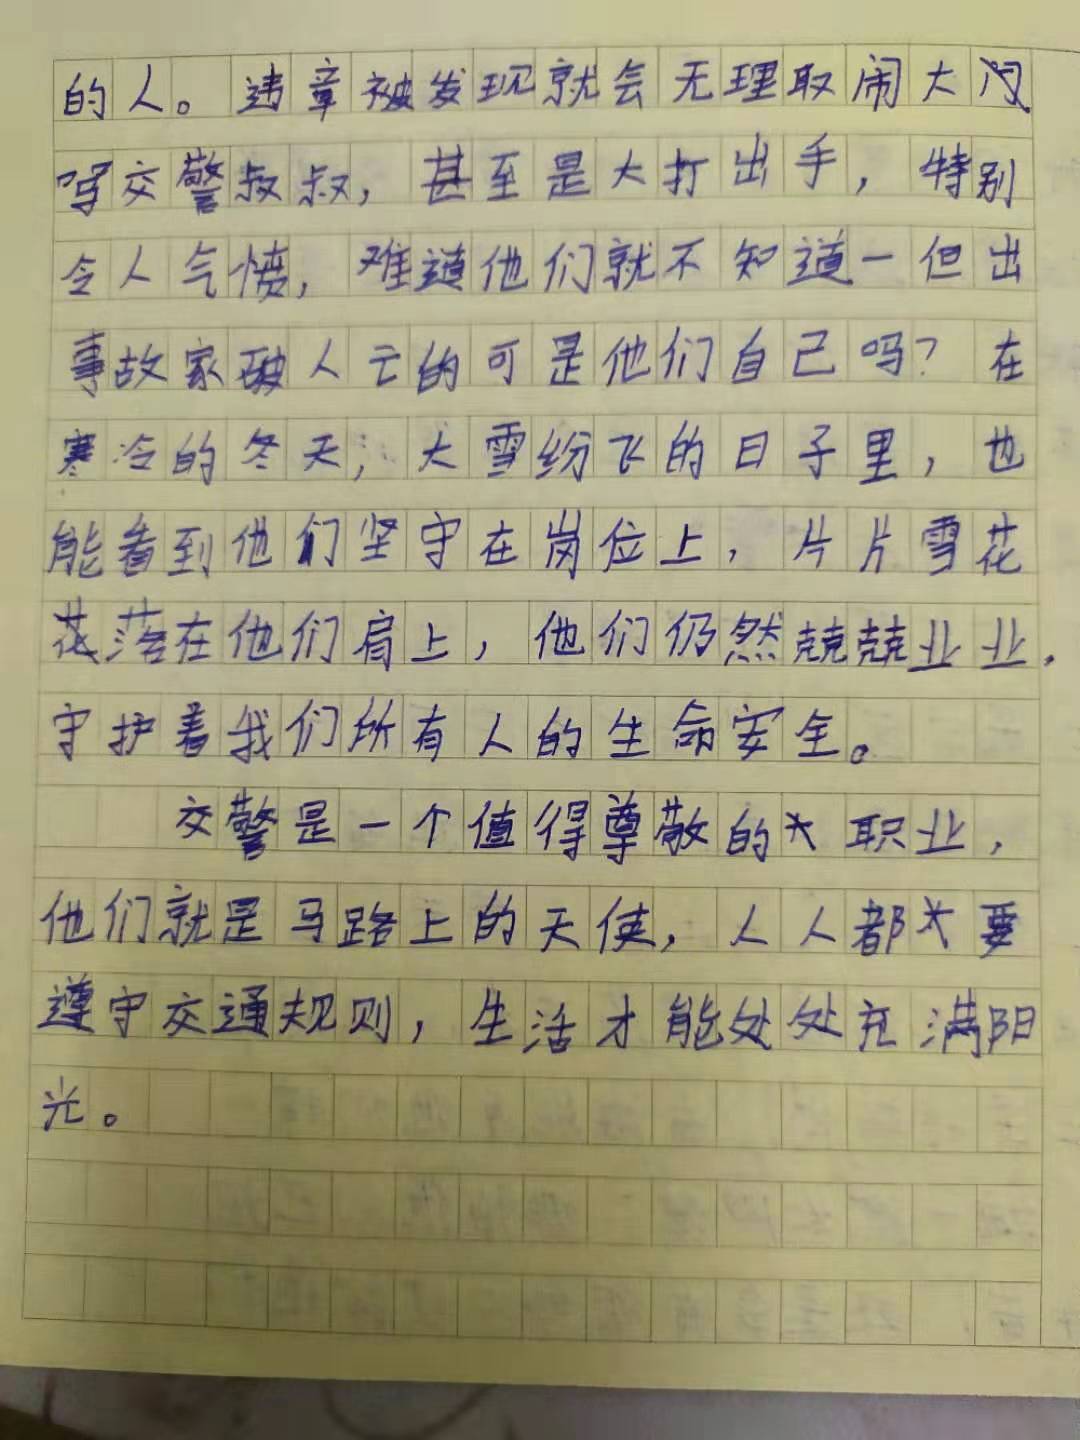 的人。违章被发现就会无理取闹大
骂交警叔叔，甚至是大打出手，特别
令人气愤，难道他们就不知道一但出
事故家破人亡的可是他们自己吗？在
寒冷的冬天；大雪纷飞的日子里，也
能看到他们坚守在岗位上，片片雪花
落在他们肩上，他们仍然兢兢业业，
守护着我们所有人的生命安全。
交警是一个值得尊敬的职业，
他们就是马路上的天使，人人都要
遵守交通规则，生活才能处处充满阳
光。